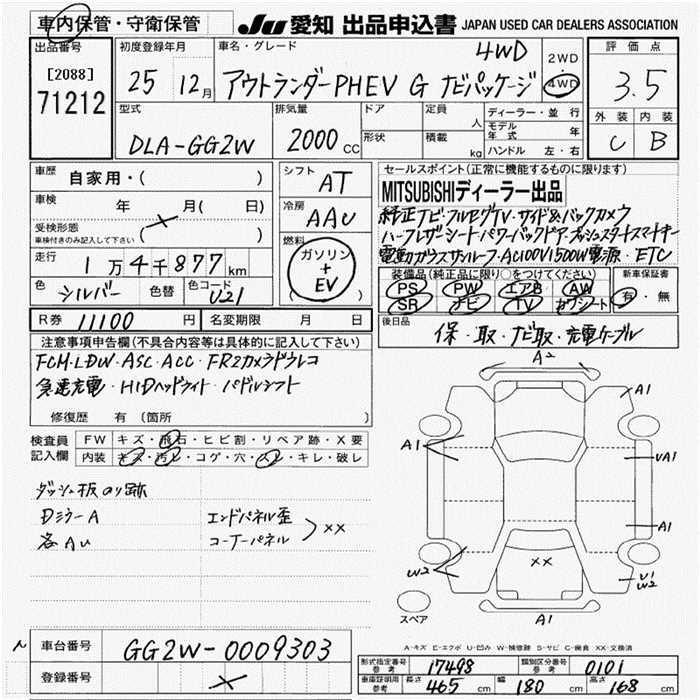 車内保管・守衛保管
JU 愛知 出品申込書 JAPAN USED CAR DEALERS ASSOCIATION
出品番号 初度登録年月 車名・グレード 4WD 2WD 評価点
[2088] 25 12月 アウトランダーPHEV G ナビパッケージ 4WD 3.5
71212
型式 排気量 ドア 定員 人 ディーラー・並行 外装 内装
DLA-GG2W 2000cc 形状 積載 kg モデル年式 年 C B
ハンドル 左・右
車歴 自家用・( ) シフト AT セールスポイント(正常に機能するものに限ります)
車検 年 月( 日) 冷房 AAC MITSUBISHIディーラー出品
受検形態 ( ) 純正ナビ・フルセグTV・サイド&バックカメラ
車検付きのみ記入して下さい 燃料 ハーフレザーシート・パワーバックドア・プッシュスタートスマートキー
走行 1万4千877km ガソリン + EV ( ) 電動ガラスサンルーフ・AC100V1500W電源・ETC
色 シルバー 色替 色コード U21 装備品(純正品に限り○をつけてください) 新車保証書
PS PW エアB AW 有・無
SR ナビ TV カワシート
R券 11100円 名変期限 月 日 後日品 保・取・ナビ取・充電ケーブル
注意事項申告欄(不具合内容等は具体的に記入して下さい)
FCM・LDW・ASC・ACC・FRカメラドラレコ
急速充電・HIDヘッドライト・パドルシフト
修復歴 有(箇所 )
検査員記入欄 FW キズ・飛石・ヒビ割・リペア跡・X要
内装 キズ・汚レ・コゲ・穴・スレ・キレ・破レ
A2
A1
A1 UA1
A1
ダッシュ板のり跡
DミラーA エンドパネル歪
各AU コーナーパネル ××
××
W2 U1 W2
スペア A1
A-キズ E-エクボ U-凹み W-補修跡 S-サビ C-腐食 XX-交換済
車台番号 GG2W-0009303
登録番号
形式指定番号 参考 17498 類別区分番号 参考 0101
車庫証明用 参考 長さ 465cm 幅 180cm 高さ 168cm